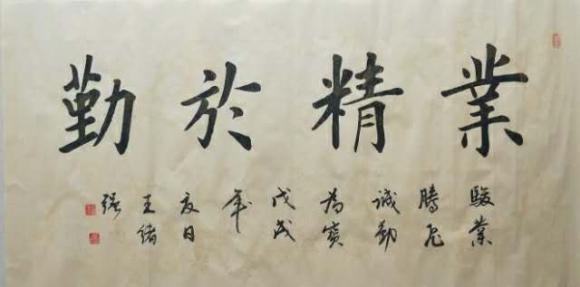 業精於勤
駿業
騰飛
誠勤
為寶
戊戌
年
夏日
王緒
强